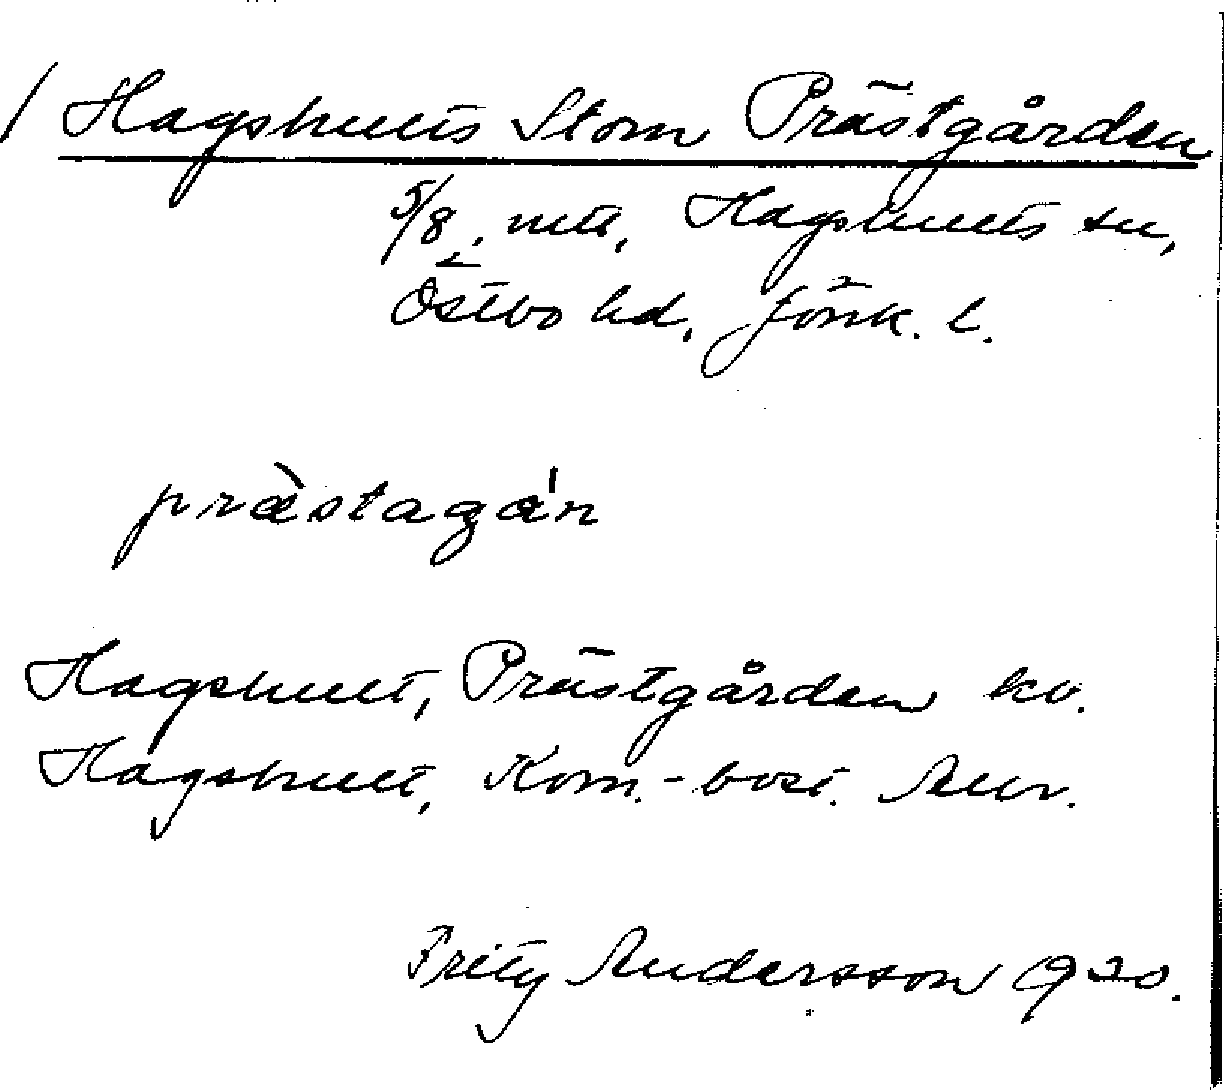 / Hagshults Stom Prästgården
5/8 mtl, Hagshults sn,
Östbo hd, Jönk. l.
prästagán
Hagshult, Prästgården kv.
Hagshult, Kom.-bost.
Fritz Andersson 1920.